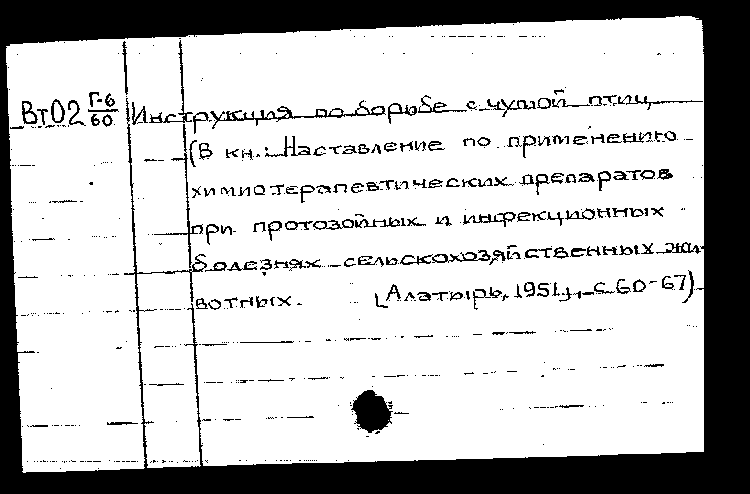 ВтО2 Г-6/60 Инструкция по борьбе с чумой птиц
(В кн.: Наставление по применению
химиотерапевтических препаратов
при протозойных и инфекционных
болезнях сельскохозяйственных жи-
вотных. [Алатырь, 1951], с 60-67)